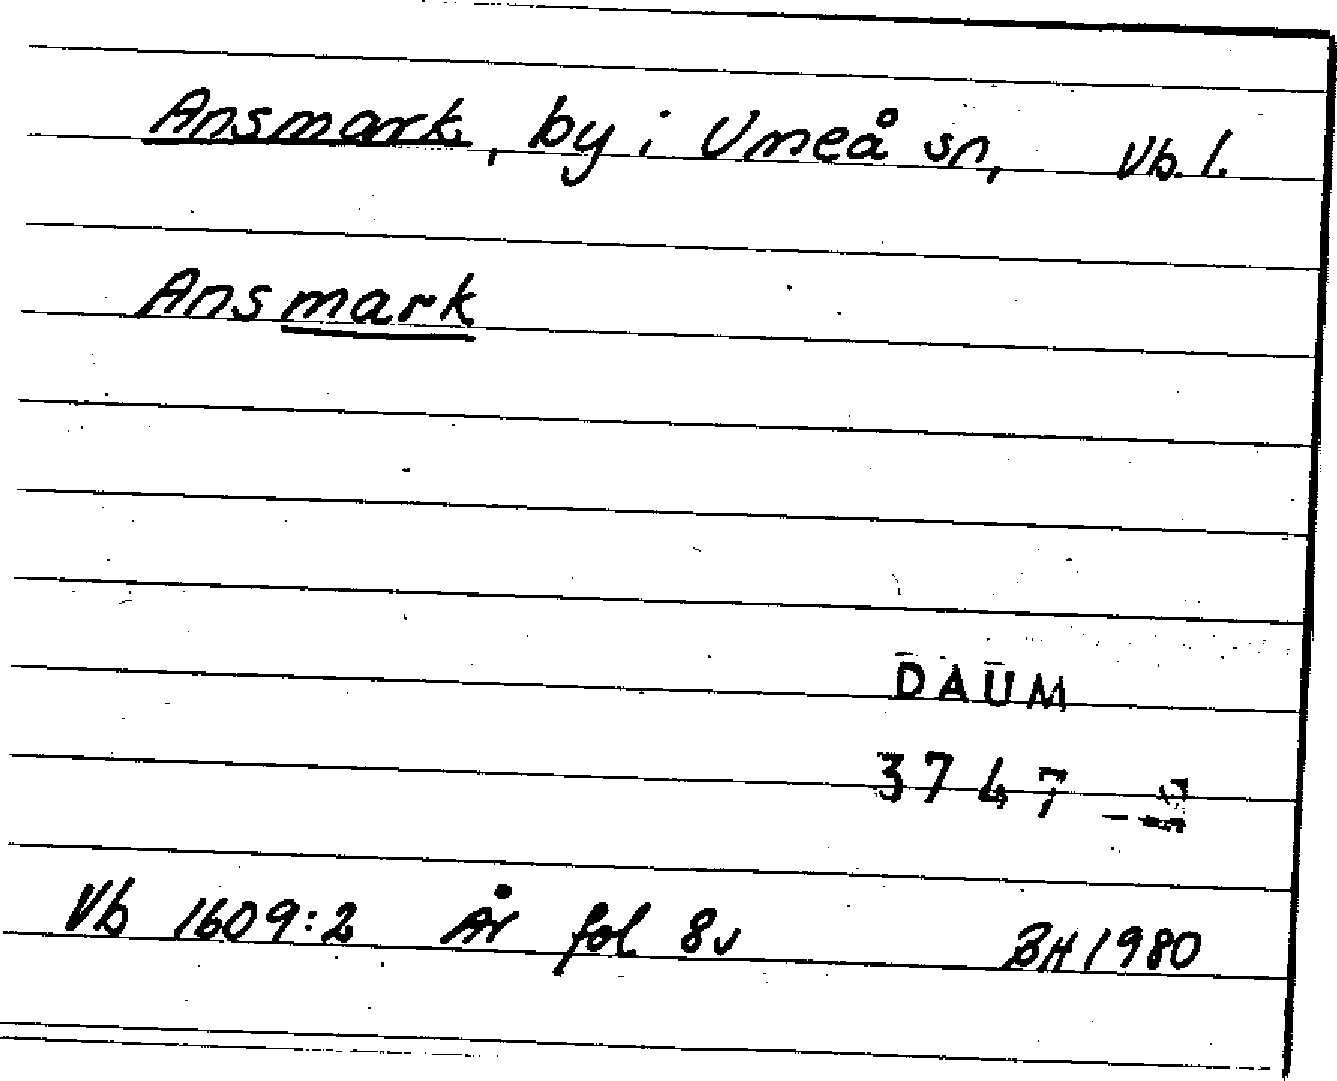 Ansmark, by i Umeå sn, Vb. l.
Ansmark
DAUM
3747
Vb 1609:2 År fol 8v BH 1980